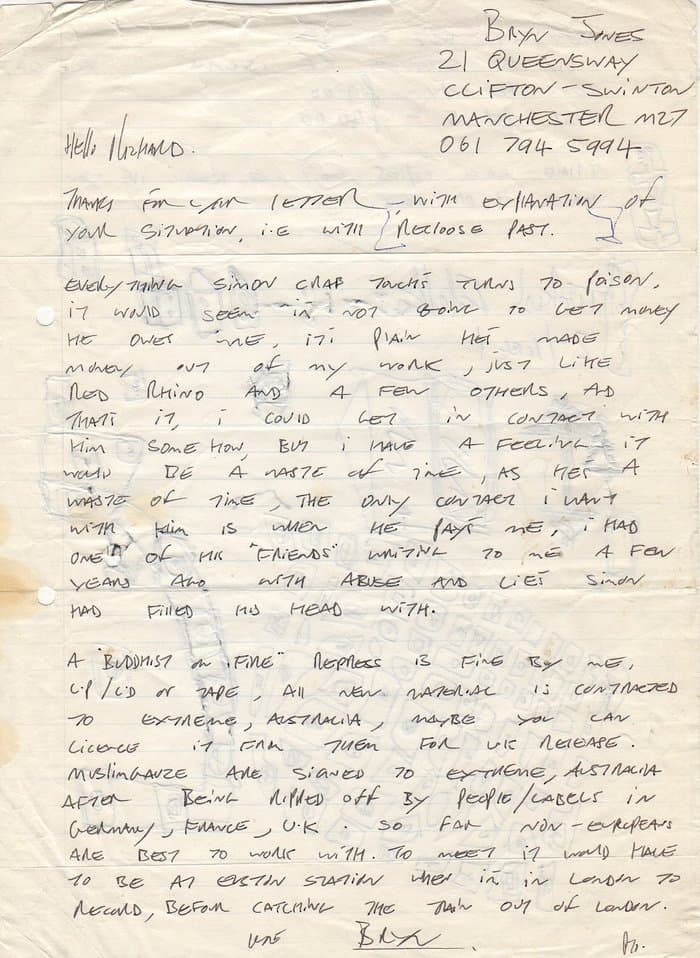 BRYN JONES
21 QUEENSWAY
CLIFTON - SWINTON
MANCHESTER M27
061 794 5994
HELLO RICHARD.
THANKS FOR YOUR LETTER - WITH EXPLANATION OF
YOUR SITUATION, I.E WITH RECLOOSE PAST.
EVERYTHING SIMON CRAP TOUCHS TURNS TO POISON,
IT WOULD SEEM I'M NOT GOING TO GET MONEY
HE OWES ME, ITS PLAIN HES MADE
MONEY OUT OF MY WORK, JUST LIKE
RED RHINO AND A FEW OTHERS, AD
THATS IT, I COULD GET IN CONTACT WITH
HIM SOME HOW, BUT I HAVE A FEELING IT
WOULD BE A WASTE OF TIME, AS HES A
WASTE OF TIME, THE ONLY CONTACT I WANT
WITH HIM IS WHEN HE PAYS ME, I HAD
ONE OF HIS "FRIENDS" WRITING TO ME A FEW
YEARS AGO WITH ABUSE AND LIES SIMON
HAD FILLED HIS HEAD WITH.
A "BUDDHIST ON FIRE" REPRESS IS FINE BY ME,
L.P/C.D OR TAPE, ALL NEW MATERIAL IS CONTRACTED
TO EXTREME, AUSTRALIA, MAYBE YOU CAN
LICENCE IT FROM THEM FOR UK RELEASE.
MUSLIMGAUZE ARE SIGNED TO EXTREME, AUSTRALIA
AFTER BEING RIPPED OFF BY PEOPLE/LABELS IN
GERMANY, FRANCE, U.K. SO FAR NON-EUROPEANS
ARE BEST TO WORK WITH. TO MEET IT WOULD HAVE
TO BE AT EUSTON STATION WHEN I'M IN LONDON TO
RECORD, BEFORE CATCHING THE TRAIN OUT OF LONDON.
BRYN.